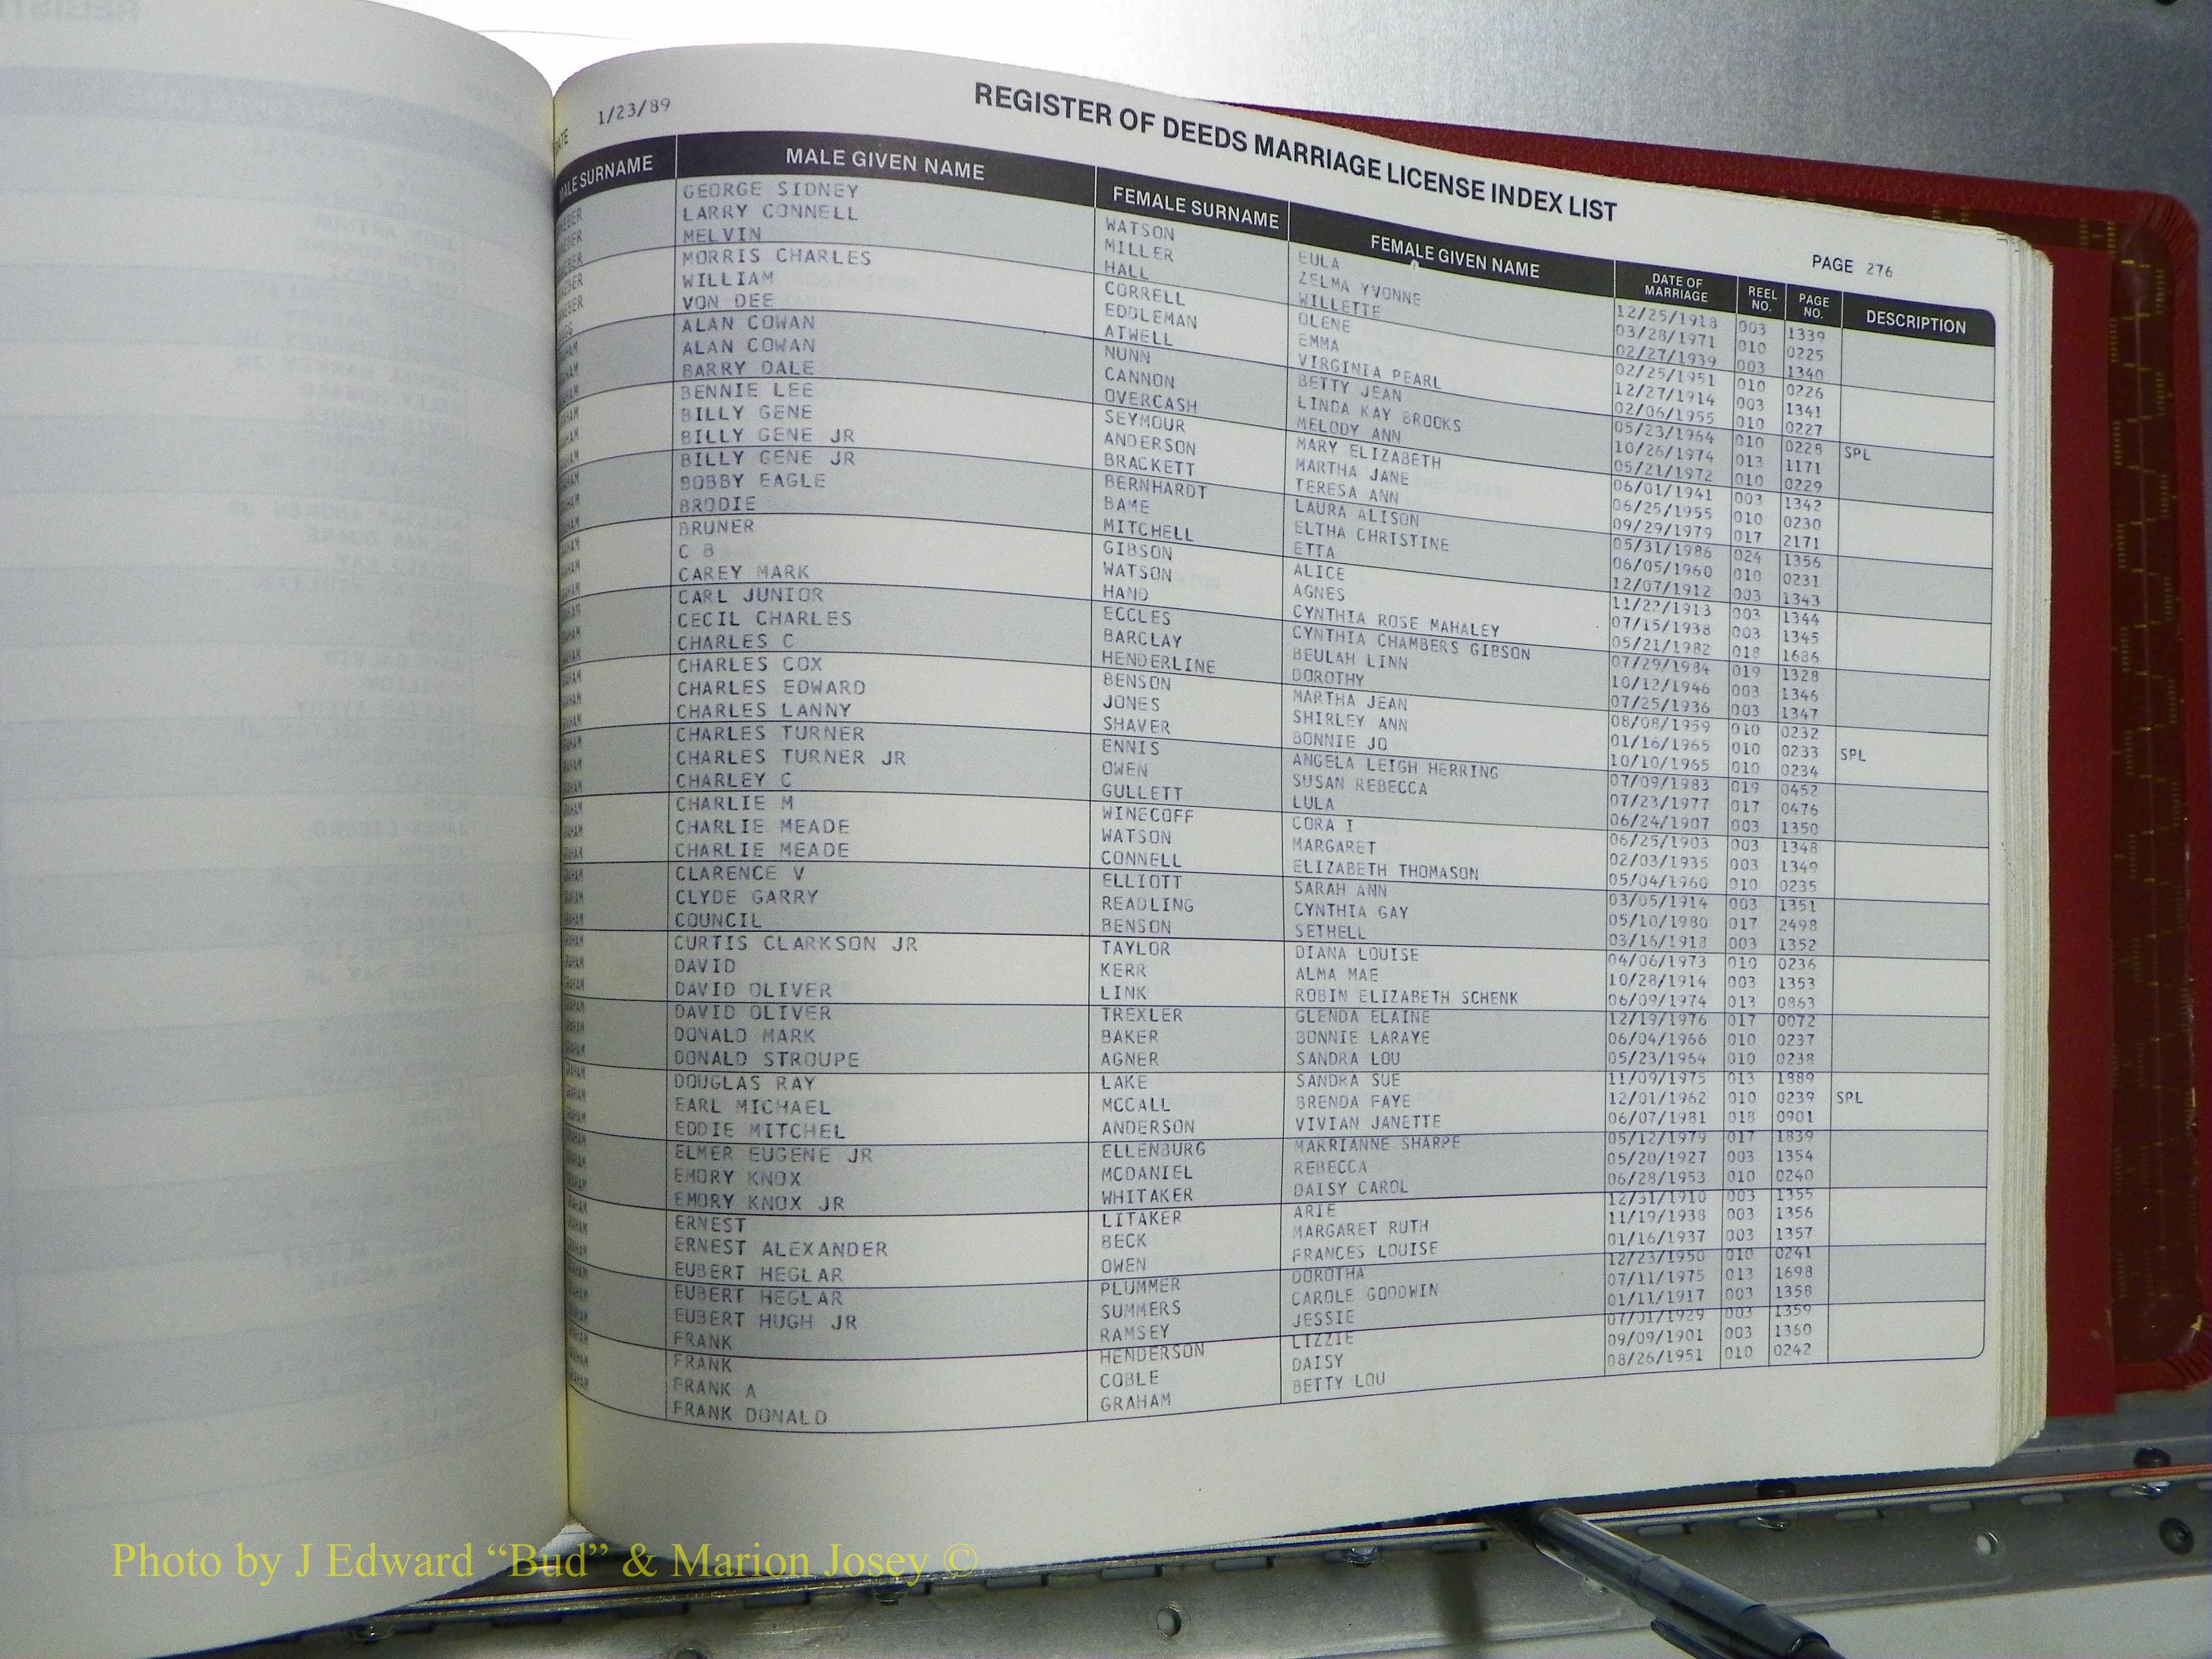 DATE 1/23/89
REGISTER OF DEEDS MARRIAGE LICENSE INDEX LIST
PAGE 276
MALE SURNAME MALE GIVEN NAME FEMALE SURNAME FEMALE GIVEN NAME DATE OF MARRIAGE REEL NO. PAGE NO. DESCRIPTION
GEORGE SIDNEY WATSON EULA 12/25/1918 003 1339
LARRY CONNELL MILLER ZELMA YVONNE 03/28/1971 010 0225
MELVIN HALL WILLETTE 02/27/1939 003 1340
MORRIS CHARLES CORRELL OLENE 02/25/1951 010 0226
WILLIAM EDDLEMAN EMMA 12/27/1914 003 1341
VON DEE ATWELL VIRGINIA PEARL 02/06/1955 010 0227
ALAN COWAN NUNN BETTY JEAN 05/23/1964 010 0228 SPL
ALAN COWAN CANNON LINDA KAY BROOKS 10/26/1974 013 1171
BARRY DALE OVERCASH MELODY ANN 05/21/1972 010 0229
BENNIE LEE SEYMOUR MARY ELIZABETH 06/01/1941 003 1342
BILLY GENE ANDERSON MARTHA JANE 06/25/1955 010 0230
BILLY GENE JR BRACKETT TERESA ANN 09/29/1979 017 2171
BILLY GENE JR BERNHARDT LAURA ALISON 05/31/1986 024 1356
BOBBY EAGLE BAME ELTHA CHRISTINE 06/05/1960 010 0231
BRODIE MITCHELL ETTA 12/07/1912 003 1343
BRUNER GIBSON ALICE 11/27/1913 003 1344
C B WATSON AGNES 07/15/1938 003 1345
CAREY MARK HAND CYNTHIA ROSE MAHALEY 05/21/1982 018 1686
CARL JUNIOR ECCLES CYNTHIA CHAMBERS GIBSON 07/29/1984 019 1328
CECIL CHARLES BARCLAY BEULAH LINN 10/12/1946 003 1346
CHARLES C HENDERLINE DOROTHY 07/25/1936 003 1347
CHARLES COX BENSON MARTHA JEAN 08/08/1959 010 0232
CHARLES EDWARD JONES SHIRLEY ANN 01/16/1965 010 0233 SPL
CHARLES LANNY SHAVER BONNIE JO 10/10/1965 010 0234
CHARLES TURNER ENNIS ANGELA LEIGH HERRING 07/09/1983 019 0452
CHARLES TURNER JR OWEN SUSAN REBECCA 07/23/1977 017 0476
CHARLEY C GULLETT LULA 06/24/1907 003 1350
CHARLIE M WINECOFF CORA I 06/25/1903 003 1348
GRAHAM CHARLIE MEADE WATSON MARGARET 02/03/1935 003 1349
GRAHAM CHARLIE MEADE CONNELL ELIZABETH THOMASON 05/04/1960 010 0235
GRAHAM CLARENCE V ELLIOTT SARAH ANN 03/05/1914 003 1351
GRAHAM CLYDE GARRY READLING CYNTHIA GAY 05/10/1980 017 2498
GRAHAM COUNCIL BENSON SETHELL 03/16/1918 003 1352
GRAHAM CURTIS CLARKSON JR TAYLOR DIANA LOUISE 04/06/1973 010 0236
GRAHAM DAVID KERR ALMA MAE 10/28/1914 003 1353
GRAHAM DAVID OLIVER LINK ROBIN ELIZABETH SCHENK 06/09/1974 013 0863
GRAHAM DAVID OLIVER TREXLER GLENDA ELAINE 12/19/1976 017 0072
GRAHAM DONALD MARK BAKER BONNIE LARAYE 06/04/1966 010 0237
GRAHAM DONALD STROUPE AGNER SANDRA LOU 05/23/1964 010 0238
GRAHAM DOUGLAS RAY LAKE SANDRA SUE 11/09/1975 013 1889
GRAHAM EARL MICHAEL MCCALL BRENDA FAYE 12/01/1962 010 0239 SPL
GRAHAM EDDIE MITCHEL ANDERSON VIVIAN JANETTE 06/07/1981 018 0901
GRAHAM ELMER EUGENE JR ELLENBURG MARRIANNE SHARPE 05/12/1979 017 1839
GRAHAM EMORY KNOX MCDANIEL REBECCA 05/20/1927 003 1354
GRAHAM EMORY KNOX JR WHITAKER DAISY CAROL 06/28/1953 010 0240
GRAHAM ERNEST LITAKER ARIE 12/31/1910 003 1355
GRAHAM ERNEST ALEXANDER BECK MARGARET RUTH 11/19/1938 003 1356
GRAHAM EUBERT HEGLAR OWEN FRANCES LOUISE 01/16/1937 003 1357
GRAHAM EUBERT HEGLAR PLUMMER DOROTHA 12/23/1950 010 0241
GRAHAM EUBERT HUGH JR SUMMERS CAROLE GOODWIN 07/11/1975 013 1698
GRAHAM FRANK RAMSEY JESSIE 01/11/1917 003 1358
GRAHAM FRANK HENDERSON LIZZIE 07/01/1929 003 1359
GRAHAM FRANK A COBLE DAISY 09/09/1901 003 1360
GRAHAM FRANK DONALD GRAHAM BETTY LOU 08/26/1951 010 0242
Photo by J Edward “Bud” & Marion Josey ©